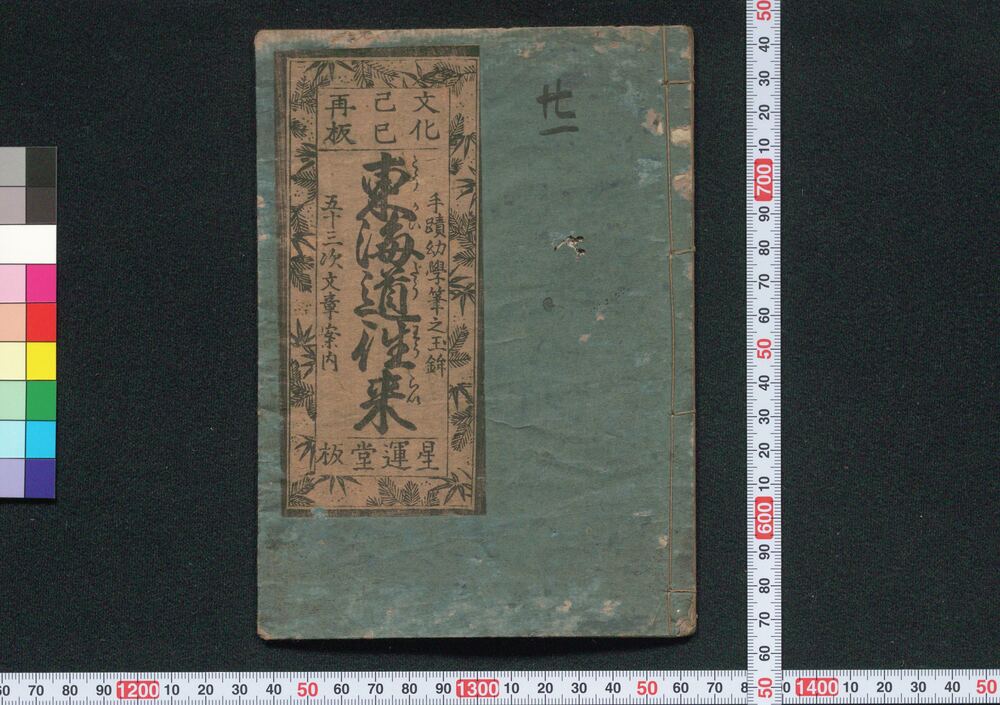 文化
己巳
再板
手蹟幼學筆之玉鉾
東海道往来
とう かい だう わう らい
五十三次文章案内
星運堂板
廿一
60 70 80 90 1200 10 20 30 40 50 60 70 80 90 1300 10 20 30 40 50 60 70 8 0 1400 10 20 30 40 50
50 40 30 20 10 700 90 80 70 60 50 40 30 20 10 600 90 80 70 60 50